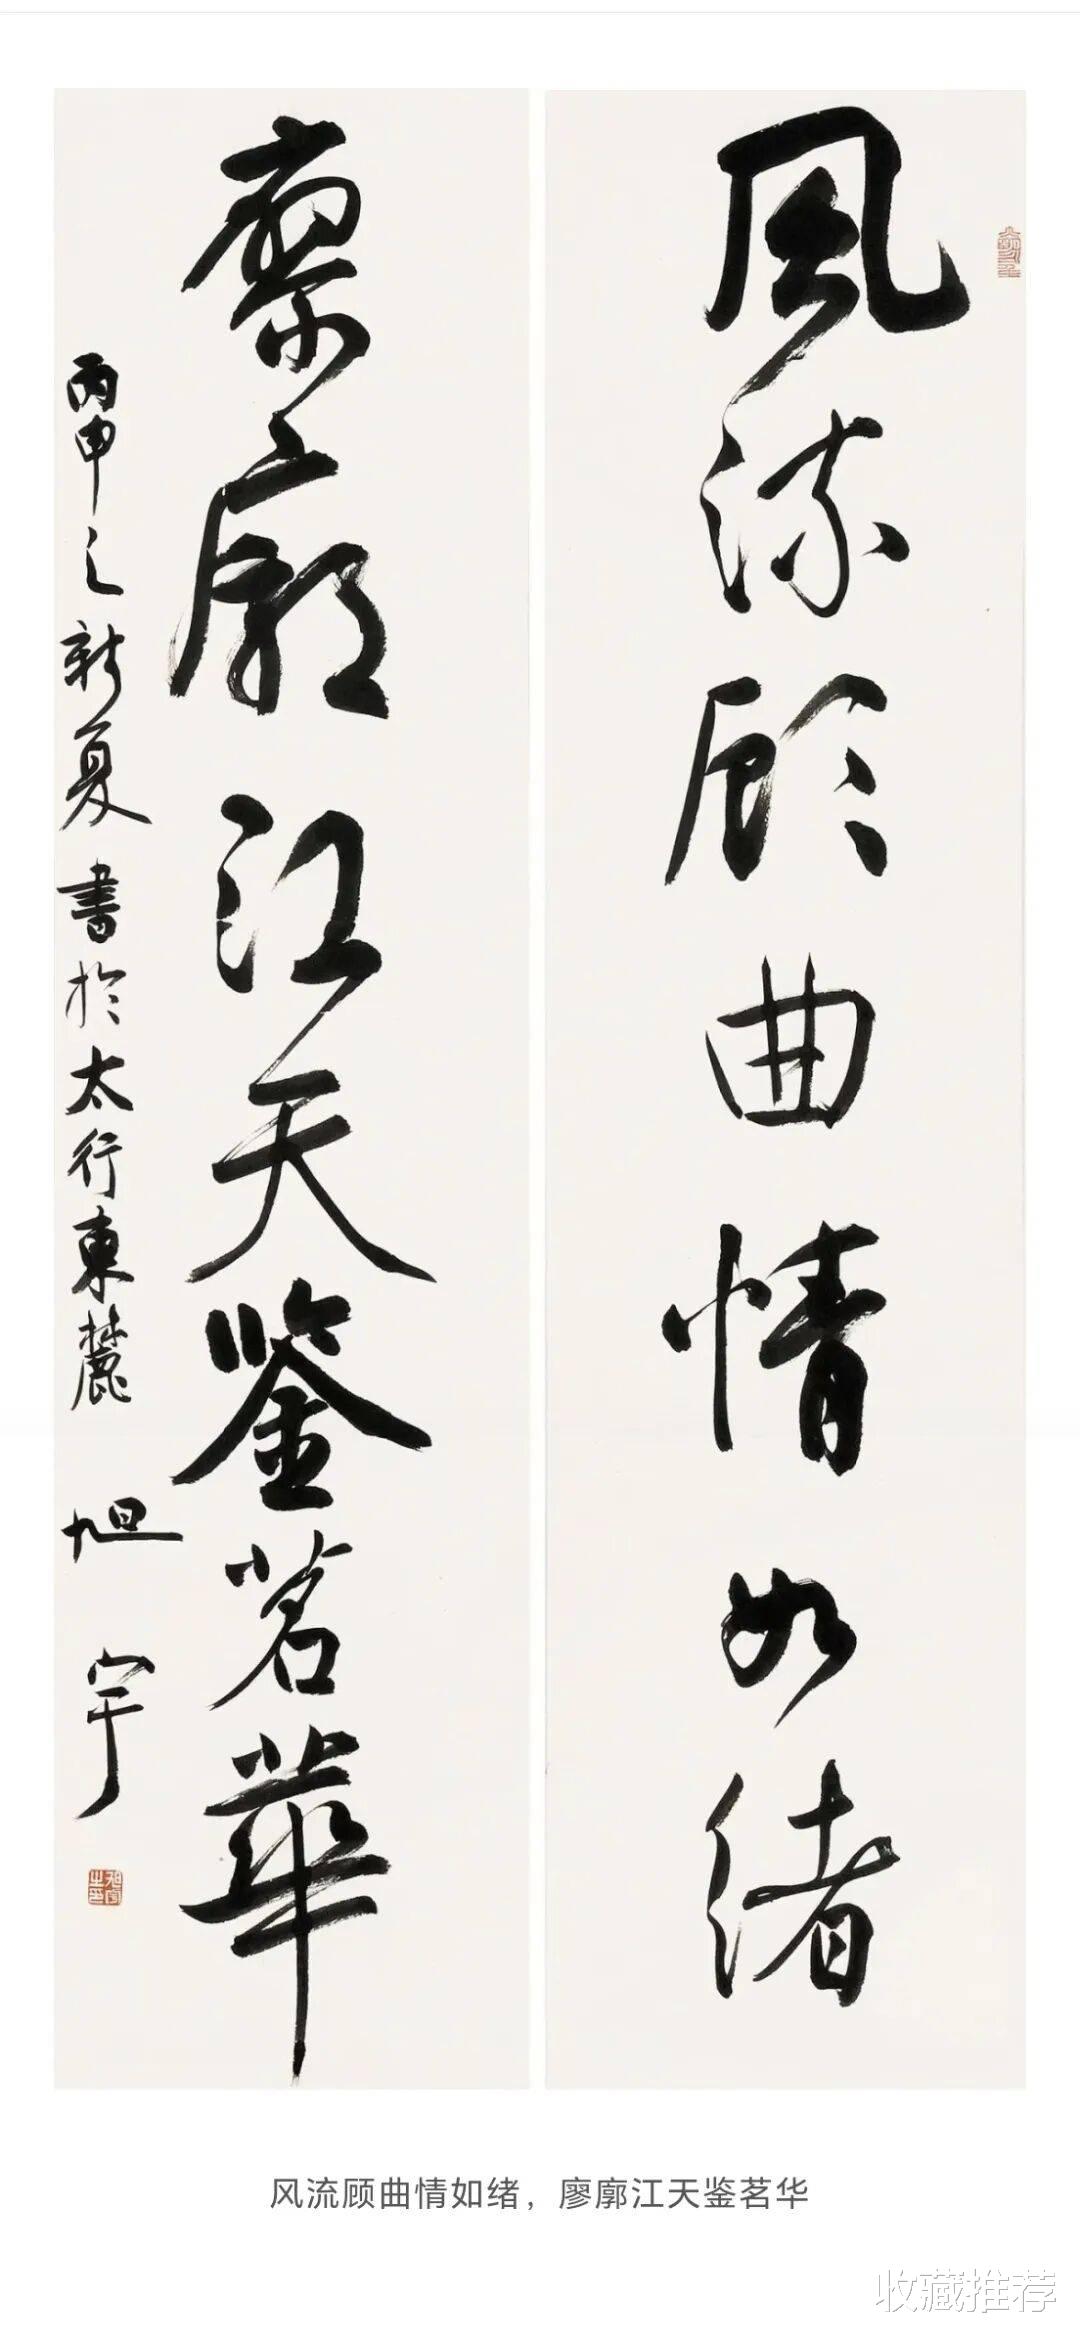 風流顧曲情如緒
廖廓江天鑒茗華
丙申之新夏書於太行東麓 旭宇
旭宇之印
风流顾曲情如绪，廖廓江天鉴茗华
收藏推荐